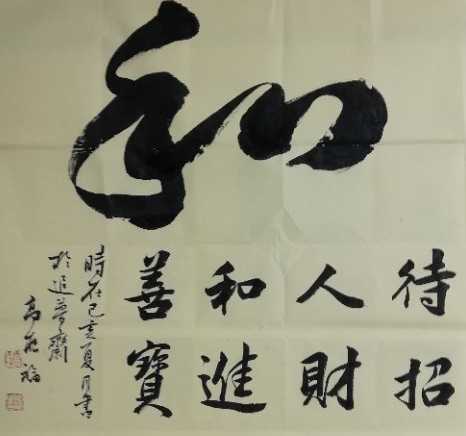 和
待人和善
招財進寶
時在己亥夏月書
於追夢齋